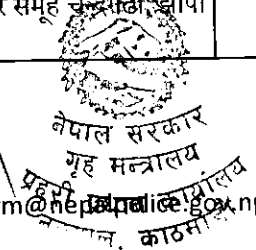 समूह चन्द्रगढी, झापा
नेपाल सरकार
गृह मन्त्रालय
प्रहरी प्रधान कार्यालय
m@nepalpolice.gov.np